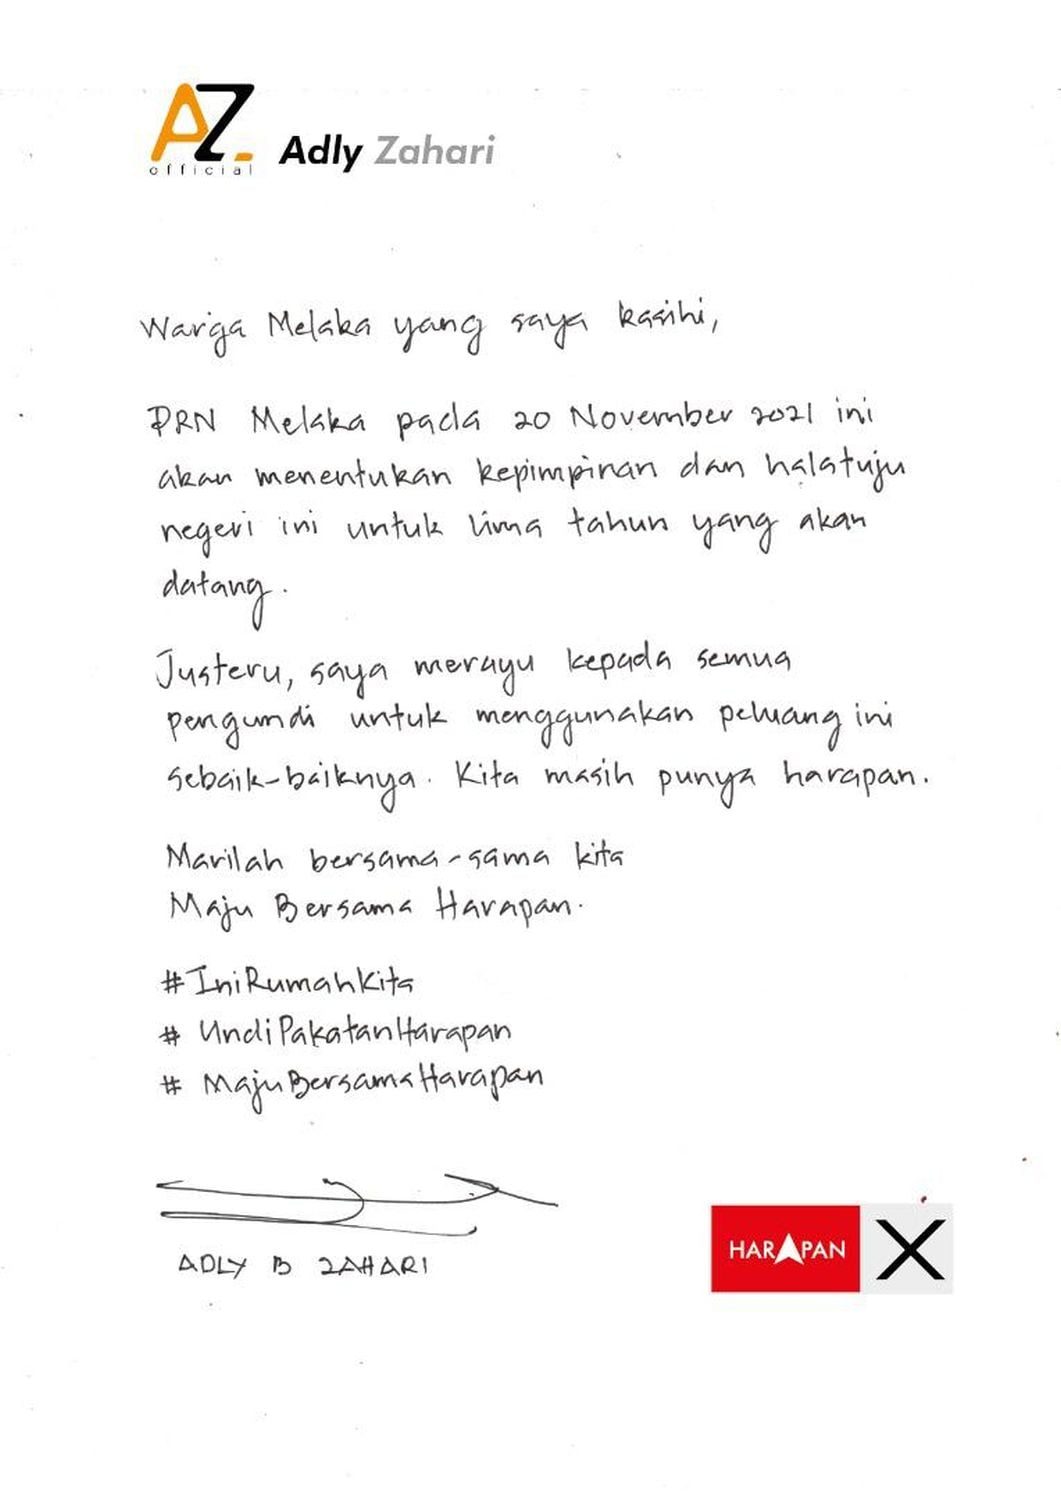 AZ.
official
Adly Zahari
Warga Melaka yang saya kasihi,
PRN Melaka pada 20 November 2021 ini
akan menentukan kepimpinan dan halatuju
negeri ini untuk lima tahun yang akan
datang.
Justeru, saya merayu kepada semua
pengundi untuk menggunakan peluang ini
sebaik-baiknya. Kita masih punya harapan.
Marilah bersama-sama kita
Maju Bersama Harapan.
#IniRumahKita
# UndiPakatanHarapan
# MajuBersamaHarapan
ADLY B ZAHARI
HARAPAN X